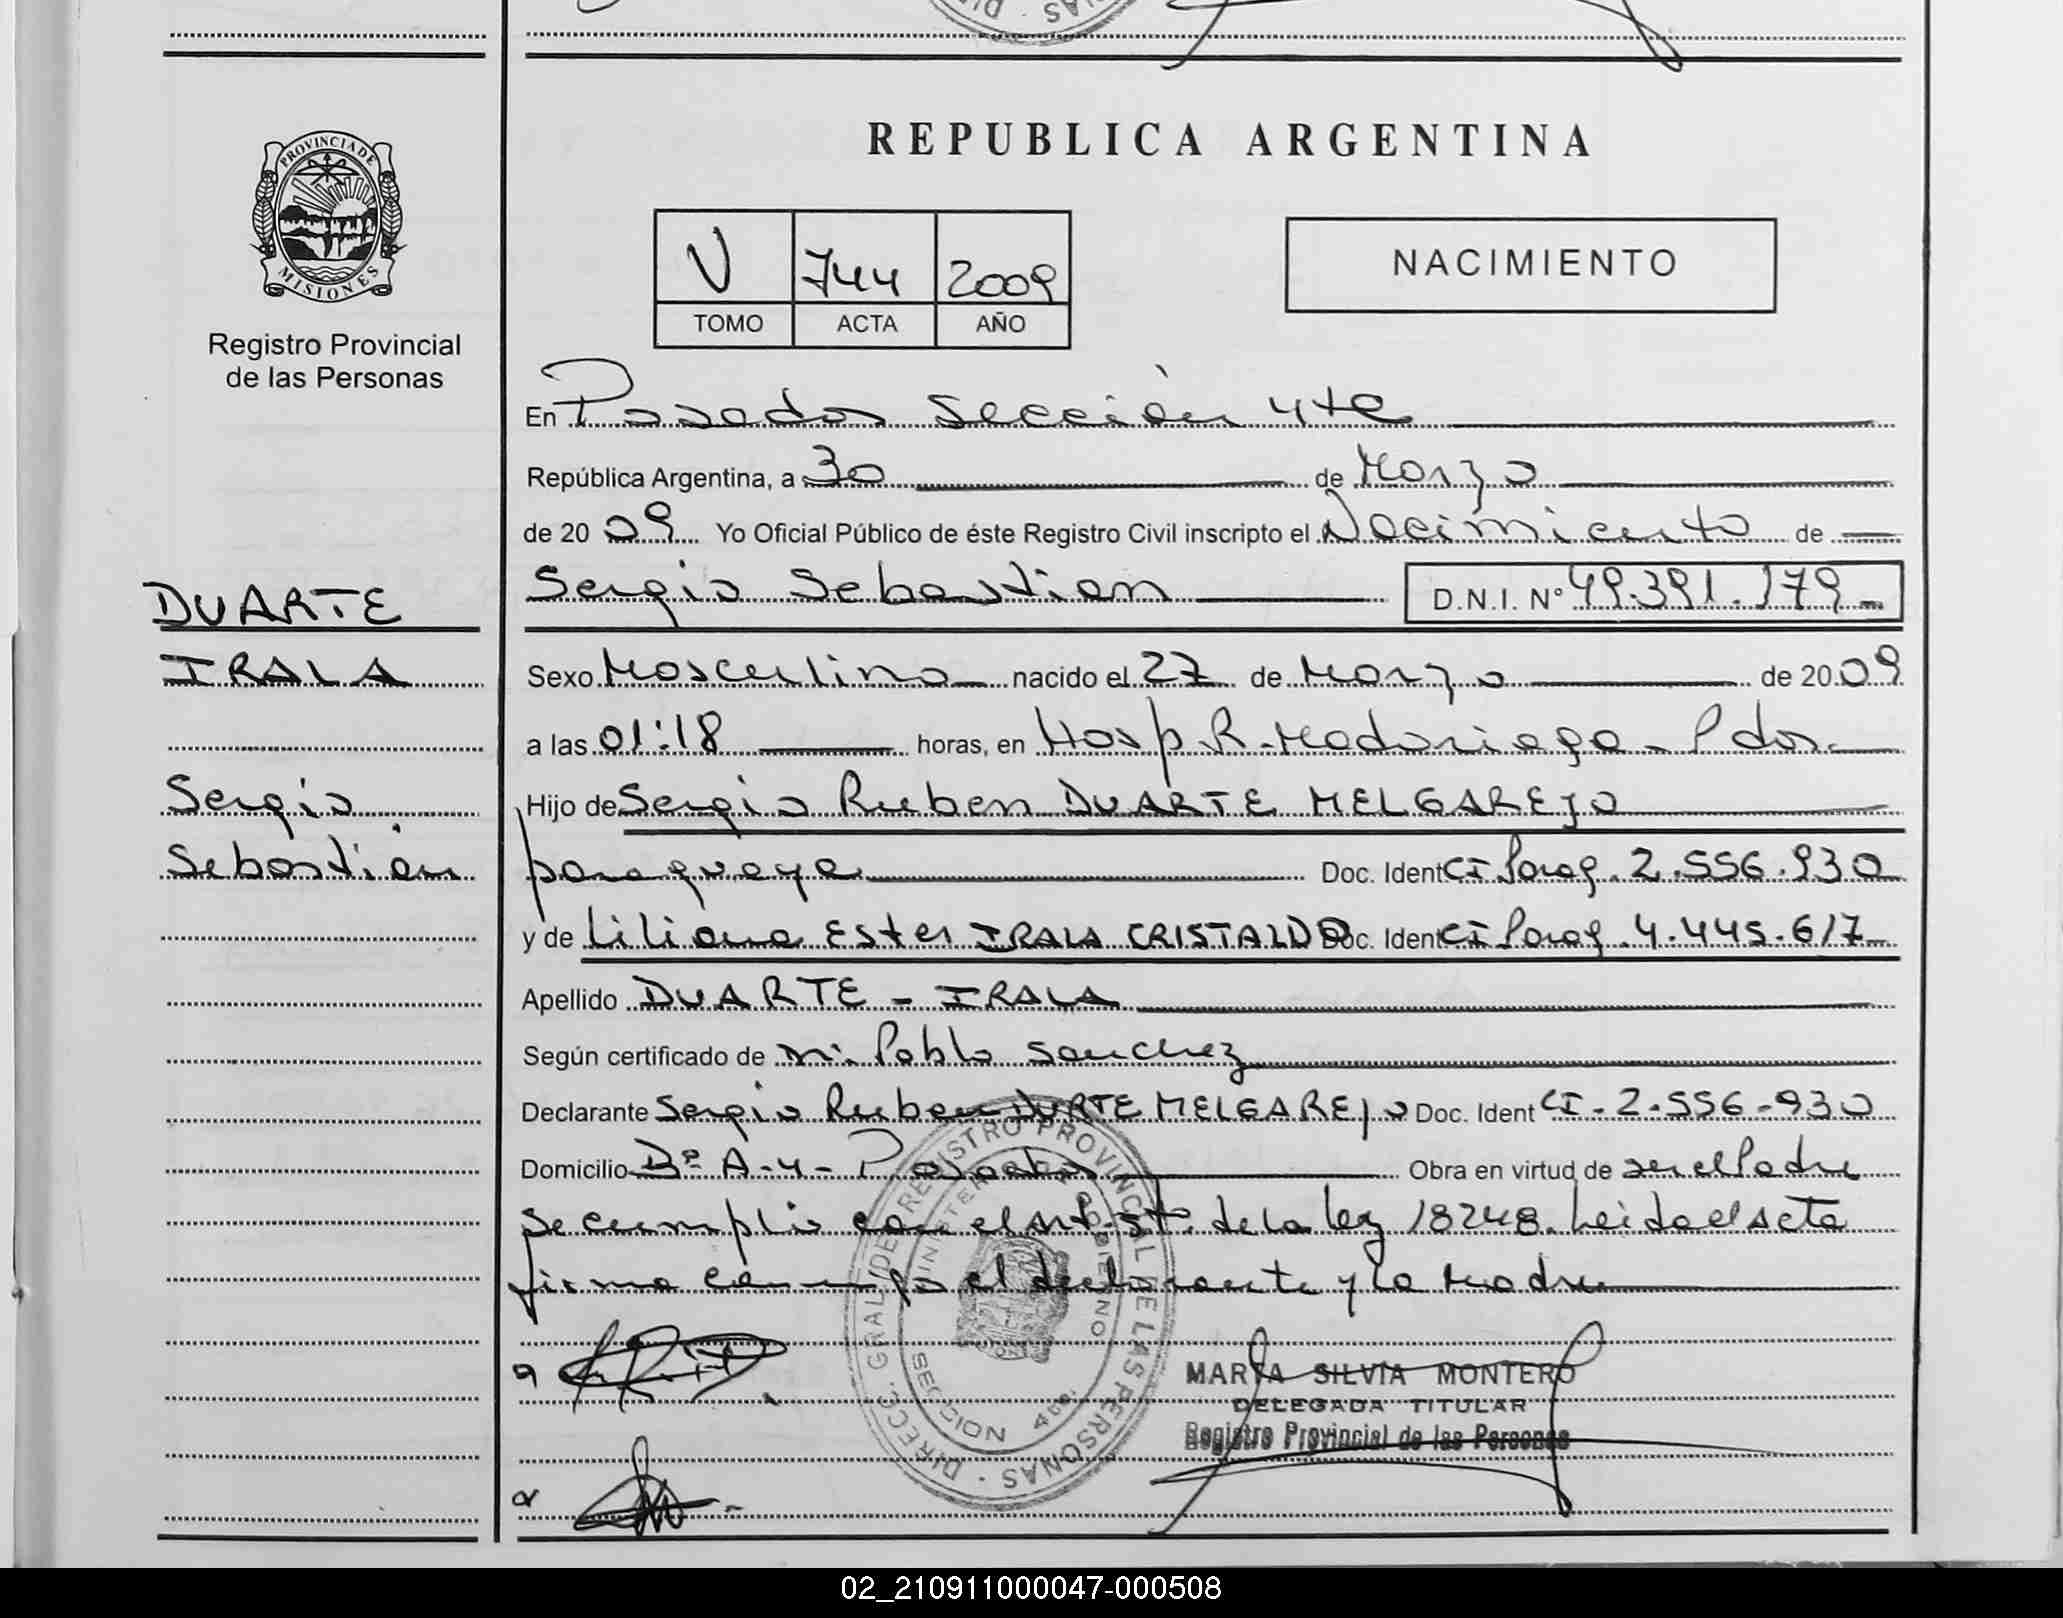 REPUBLICA ARGENTINA
PROVINCIA DE
MISIONES
Registro Provincial
de las Personas
V 744 2009
TOMO ACTA AÑO
NACIMIENTO
En Posadas Sección 4ta
República Argentina, a 30 de Marzo
de 20 09 Yo Oficial Público de éste Registro Civil inscripto el Nacimiento de
Sergio Sebastian D.N.I. N° 49.391.179
DUARTE
IRALA
Sergio
Sebastián
Sexo Masculino nacido el 27 de Marzo de 20 09
a las 01:18 horas, en Hosp R. Madariaga - Pdas.
Hijo de Sergio Ruben DUARTE MELGAREJO
paraguaya Doc. Ident CI Parag. 2.556.930
y de Liliana Ester IRALA CRISTALDO Doc. Ident CI Parag. 4.445.617
Apellido DUARTE - IRALA
Según certificado de Pablo Sanchez
Declarante Sergio Ruben DURTE MELGAREJO Doc. Ident CI - 2.556-930
Domicilio B° A-4 - Posadas Obra en virtud de ser el Padre
se cumplio con el Art. 5to. de la ley 18248. Leida el acta
firma conmigo el declarante y la madre
DIRECC. GRAL. DE REGISTRO PROVINCIAL DE LAS PERSONAS
MINISTERIO DE GOBIERNO
SECCION 4ta.
MARTA SILVIA MONTERO
DELEGADA TITULAR
Registro Provincial de las Personas
02_210911000047-000508